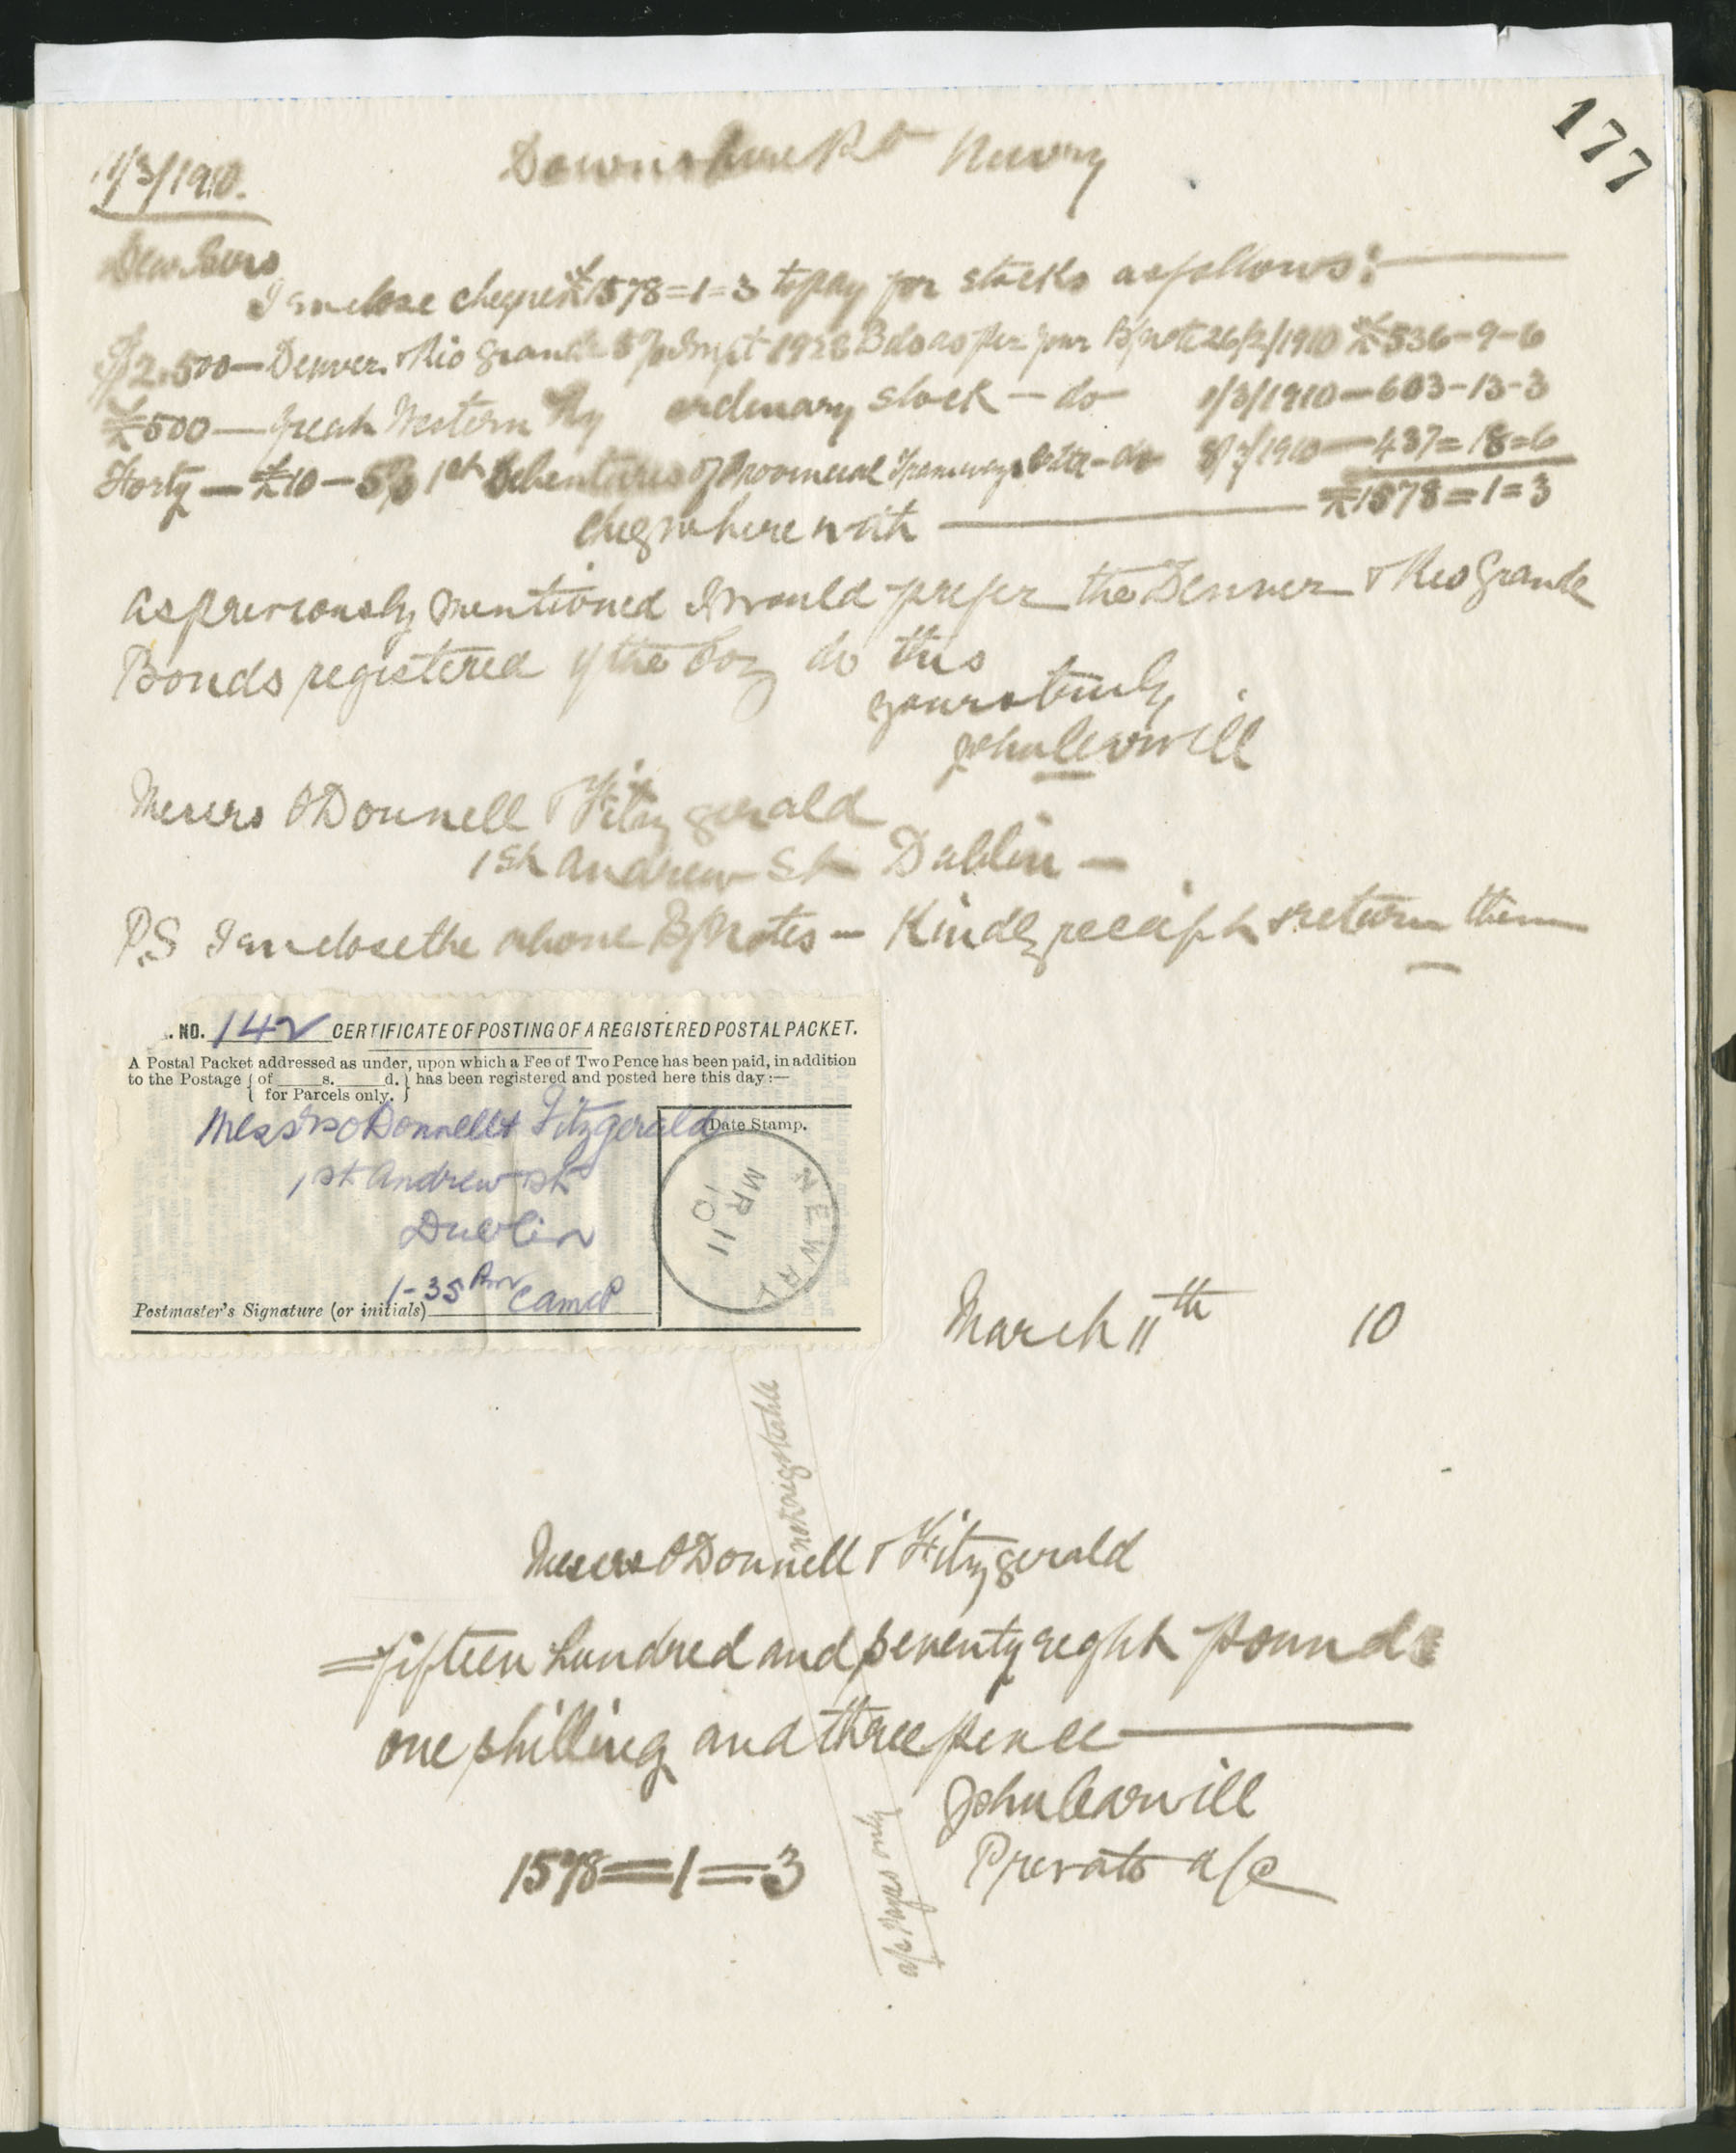 177
11/3/1910.
Downshire Rd Newry
Dear Sirs
I enclose cheque £1578=1=3 to pay for stocks as follows:—
$2.500— Denver & Rio Grande 5% Impt 1928 Bds as per your B/note 26/2/1910 £536-9-6
£500— Great Western Ry ordinary stock — do — 1/3/1910—603-13-3
Forty — £10 — 5% 1st Debentures of Provincial Tramways — do 8/3/1910—437=18=6
cheq herewith — £1578=1=3
As previously mentioned I would prefer the Denver & Rio Grande
Bonds registered if the Coy do this
yours truly
John Carvill
Messrs O'Donnell & Fitzgerald
1 St Andrew St Dublin —
P.S I enclose the above B/Notes — Kindly receipt & return them
NO. 142 CERTIFICATE OF POSTING OF A REGISTERED POSTAL PACKET.
A Postal Packet addressed as under, upon which a Fee of Two Pence has been paid, in addition
to the Postage { of s. d. } has been registered and posted here this day:—
for Parcels only.
Messrs O'Donnell & Fitzgerald
1 St Andrew St
Dublin
1-35 Pm
Postmaster's Signature (or initials)
Date Stamp.
NEWRY
MR 11
10
March 11th 10
not negotiable
Messrs O'Donnell & Fitzgerald
=fifteen hundred and seventy eight pounds
one shilling and three pence —
John Carvill
Private a/c
1578=1=3
a/c Payees only